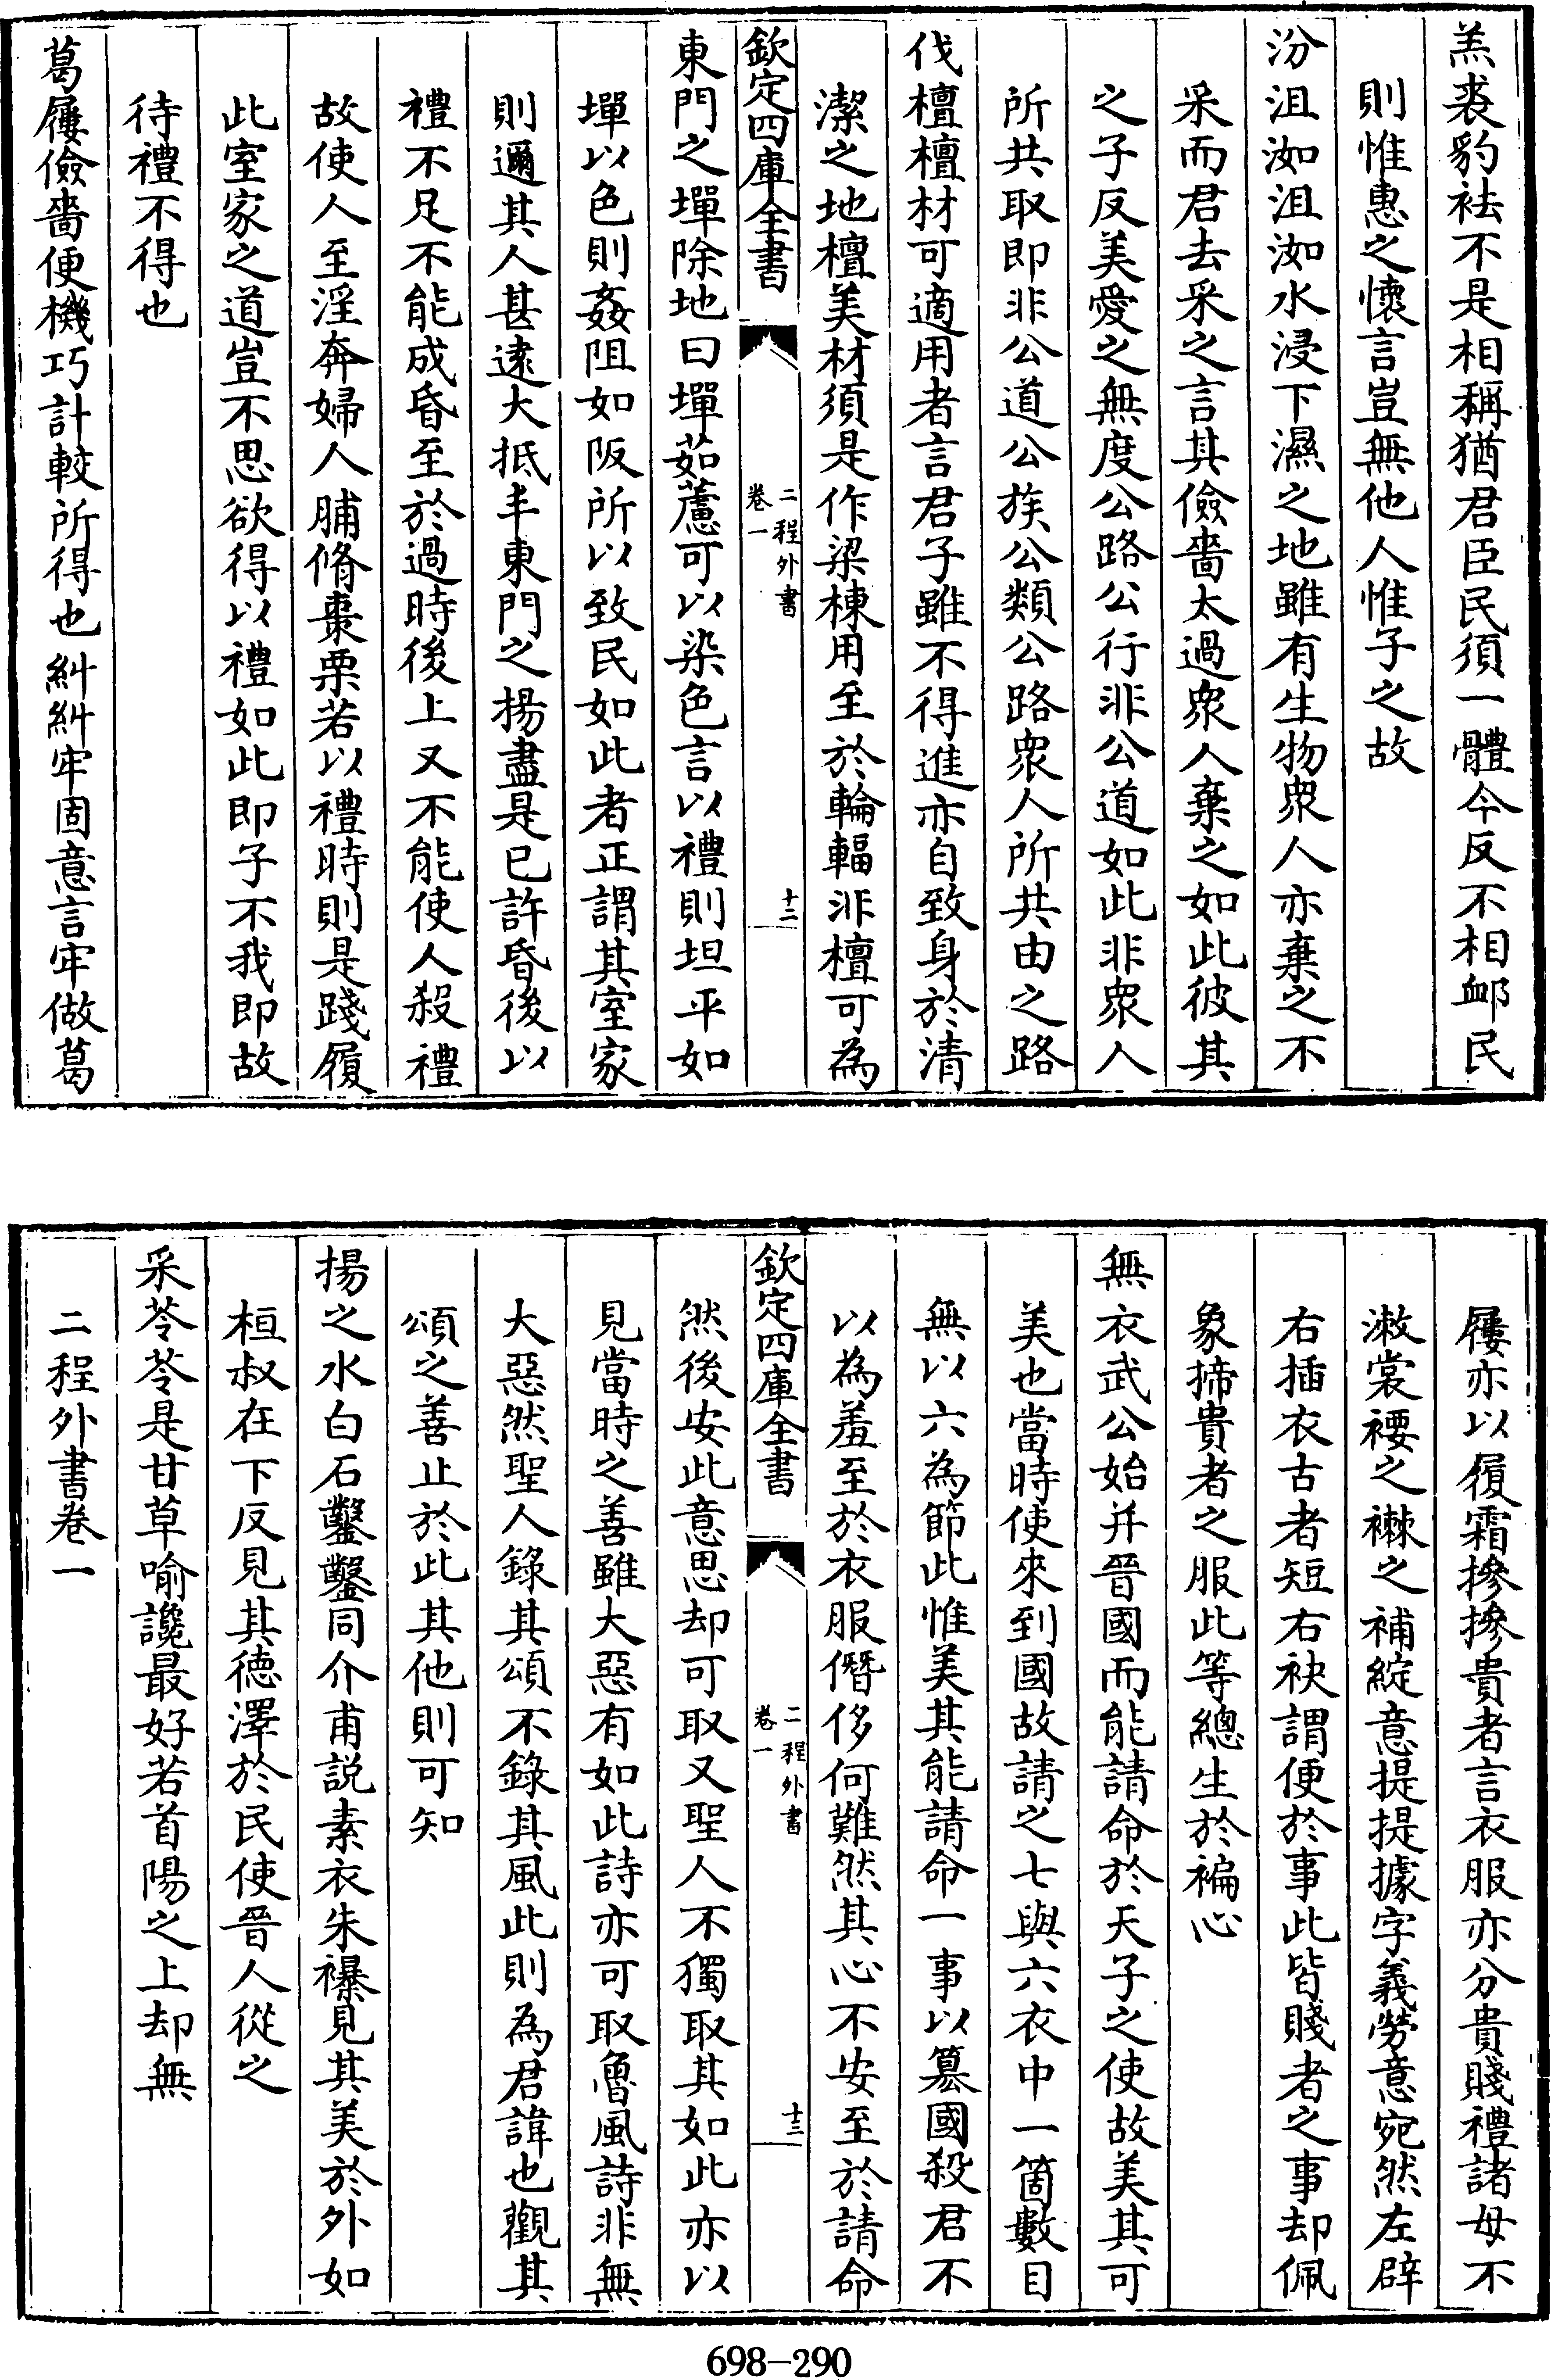 羔裘豹袪不是相稱猶君臣民須一體今反不相卹民
則惟惠之懷言豈無他人惟子之故
汾沮洳沮洳水浸下濕之地雖有生物衆人亦棄之不
采而君去采之言其儉嗇太過衆人棄之如此彼其
之子反美愛之無度公路公行非公道如此非衆人
所共取即非公道公族公類公路衆人所共由之路
伐檀檀材可適用者言君子雖不得進亦自致身於清
潔之地檀美材須是作梁棟用至於輪輻非檀可為
欽定四庫全書
二程外書
卷一
十二
東門之墠除地曰墠茹藘可以染色言以禮則坦平如
墠以色則姦阻如阪所以致民如此者正謂其室家
則邇其人甚遠大抵丰東門之揚盡是已許昏後以
禮不足不能成昏至於過時後上又不能使人殺禮
故使人至淫奔婦人脯脩棗栗若以禮時則是踐履
此室家之道豈不思欲得以禮如此即子不我即故
待禮不得也
葛屨儉嗇便機巧計較所得也糾糾牢固意言牢做葛
屨亦以履霜摻摻貴者言衣服亦分貴賤禮諸母不
漱裳褄之襋之補綻意提提據字義勞意宛然左辟
右插衣古者短右袂謂便於事此皆賤者之事却佩
象揥貴者之服此等總生於褊心
無衣武公始并晉國而能請命於天子之使故美其可
美也當時使來到國故請之七與六衣中一箇數目
無以六為節此惟美其能請命一事以簒國殺君不
以為羞至於衣服僭侈何難然其心不安至於請命
欽定四庫全書
二程外書
卷一
十三
然後安此意思却可取又聖人不獨取其如此亦以
見當時之善雖大惡有如此詩亦可取魯風詩非無
大惡然聖人錄其頌不錄其風此則為君諱也觀其
頌之善止於此其他則可知
揚之水白石鑿鑿同介甫説素衣朱襮見其美於外如
桓叔在下反見其德澤於民使晉人從之
采苓苓是甘草喻讒最好若首陽之上却無
二程外書卷一
698-290